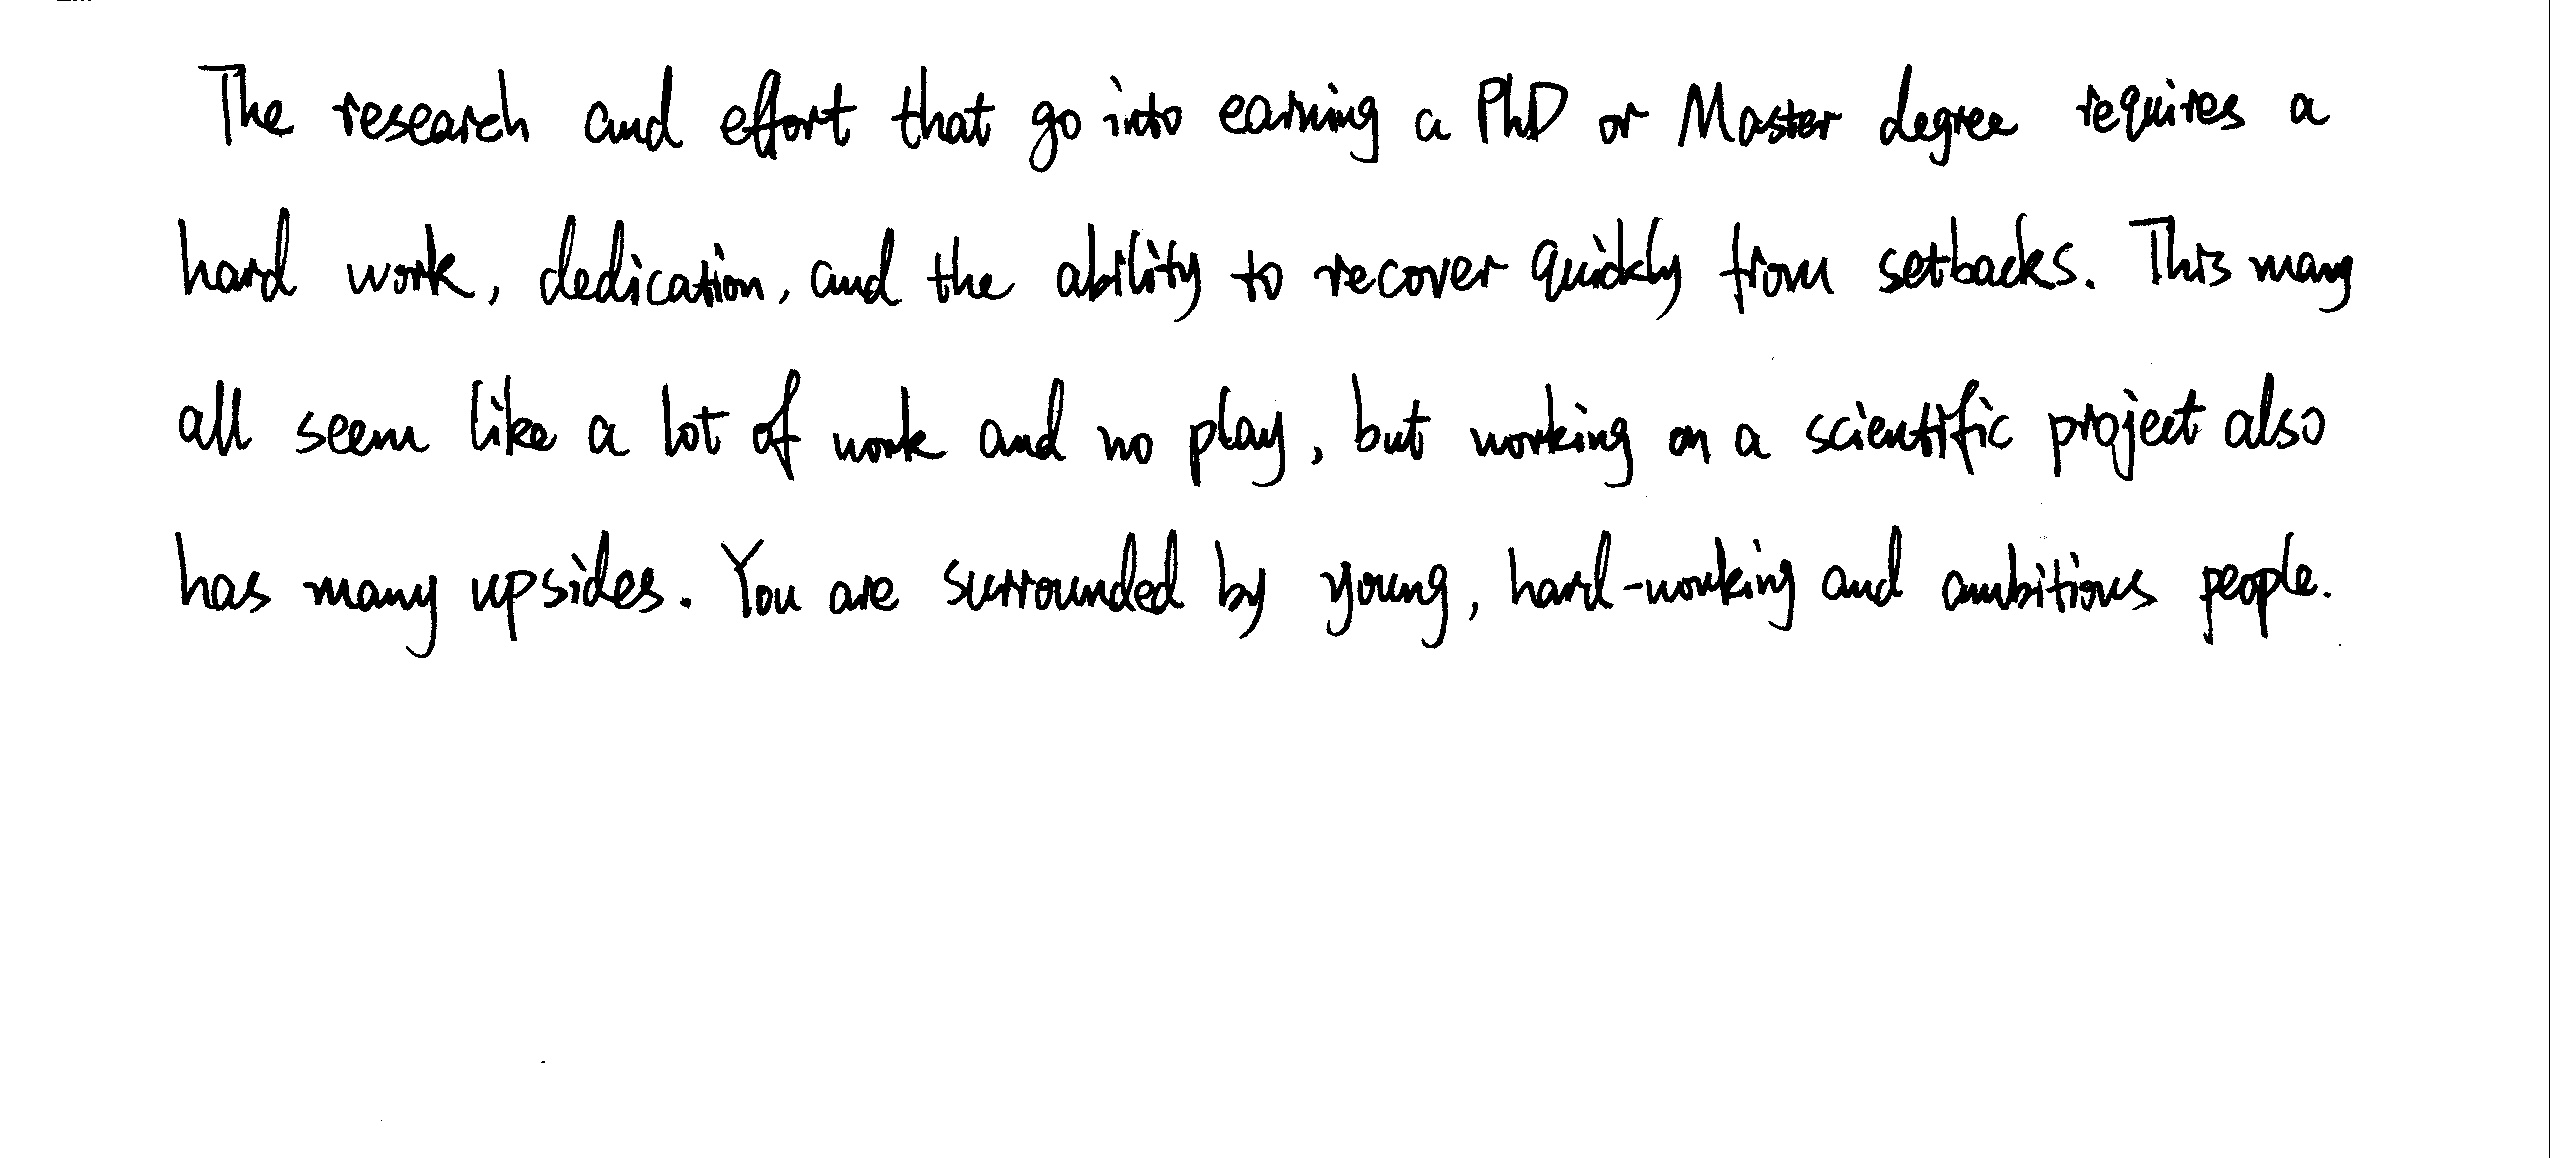 The research and effort that go into earning a PhD or Master degree requires a
hard work, dedication, and the ability to recover quickly from setbacks. This many
all seem like a lot of work and no play, but working on a scientific project also
has many upsides. You are surrounded by young, hard-working and ambitious people.